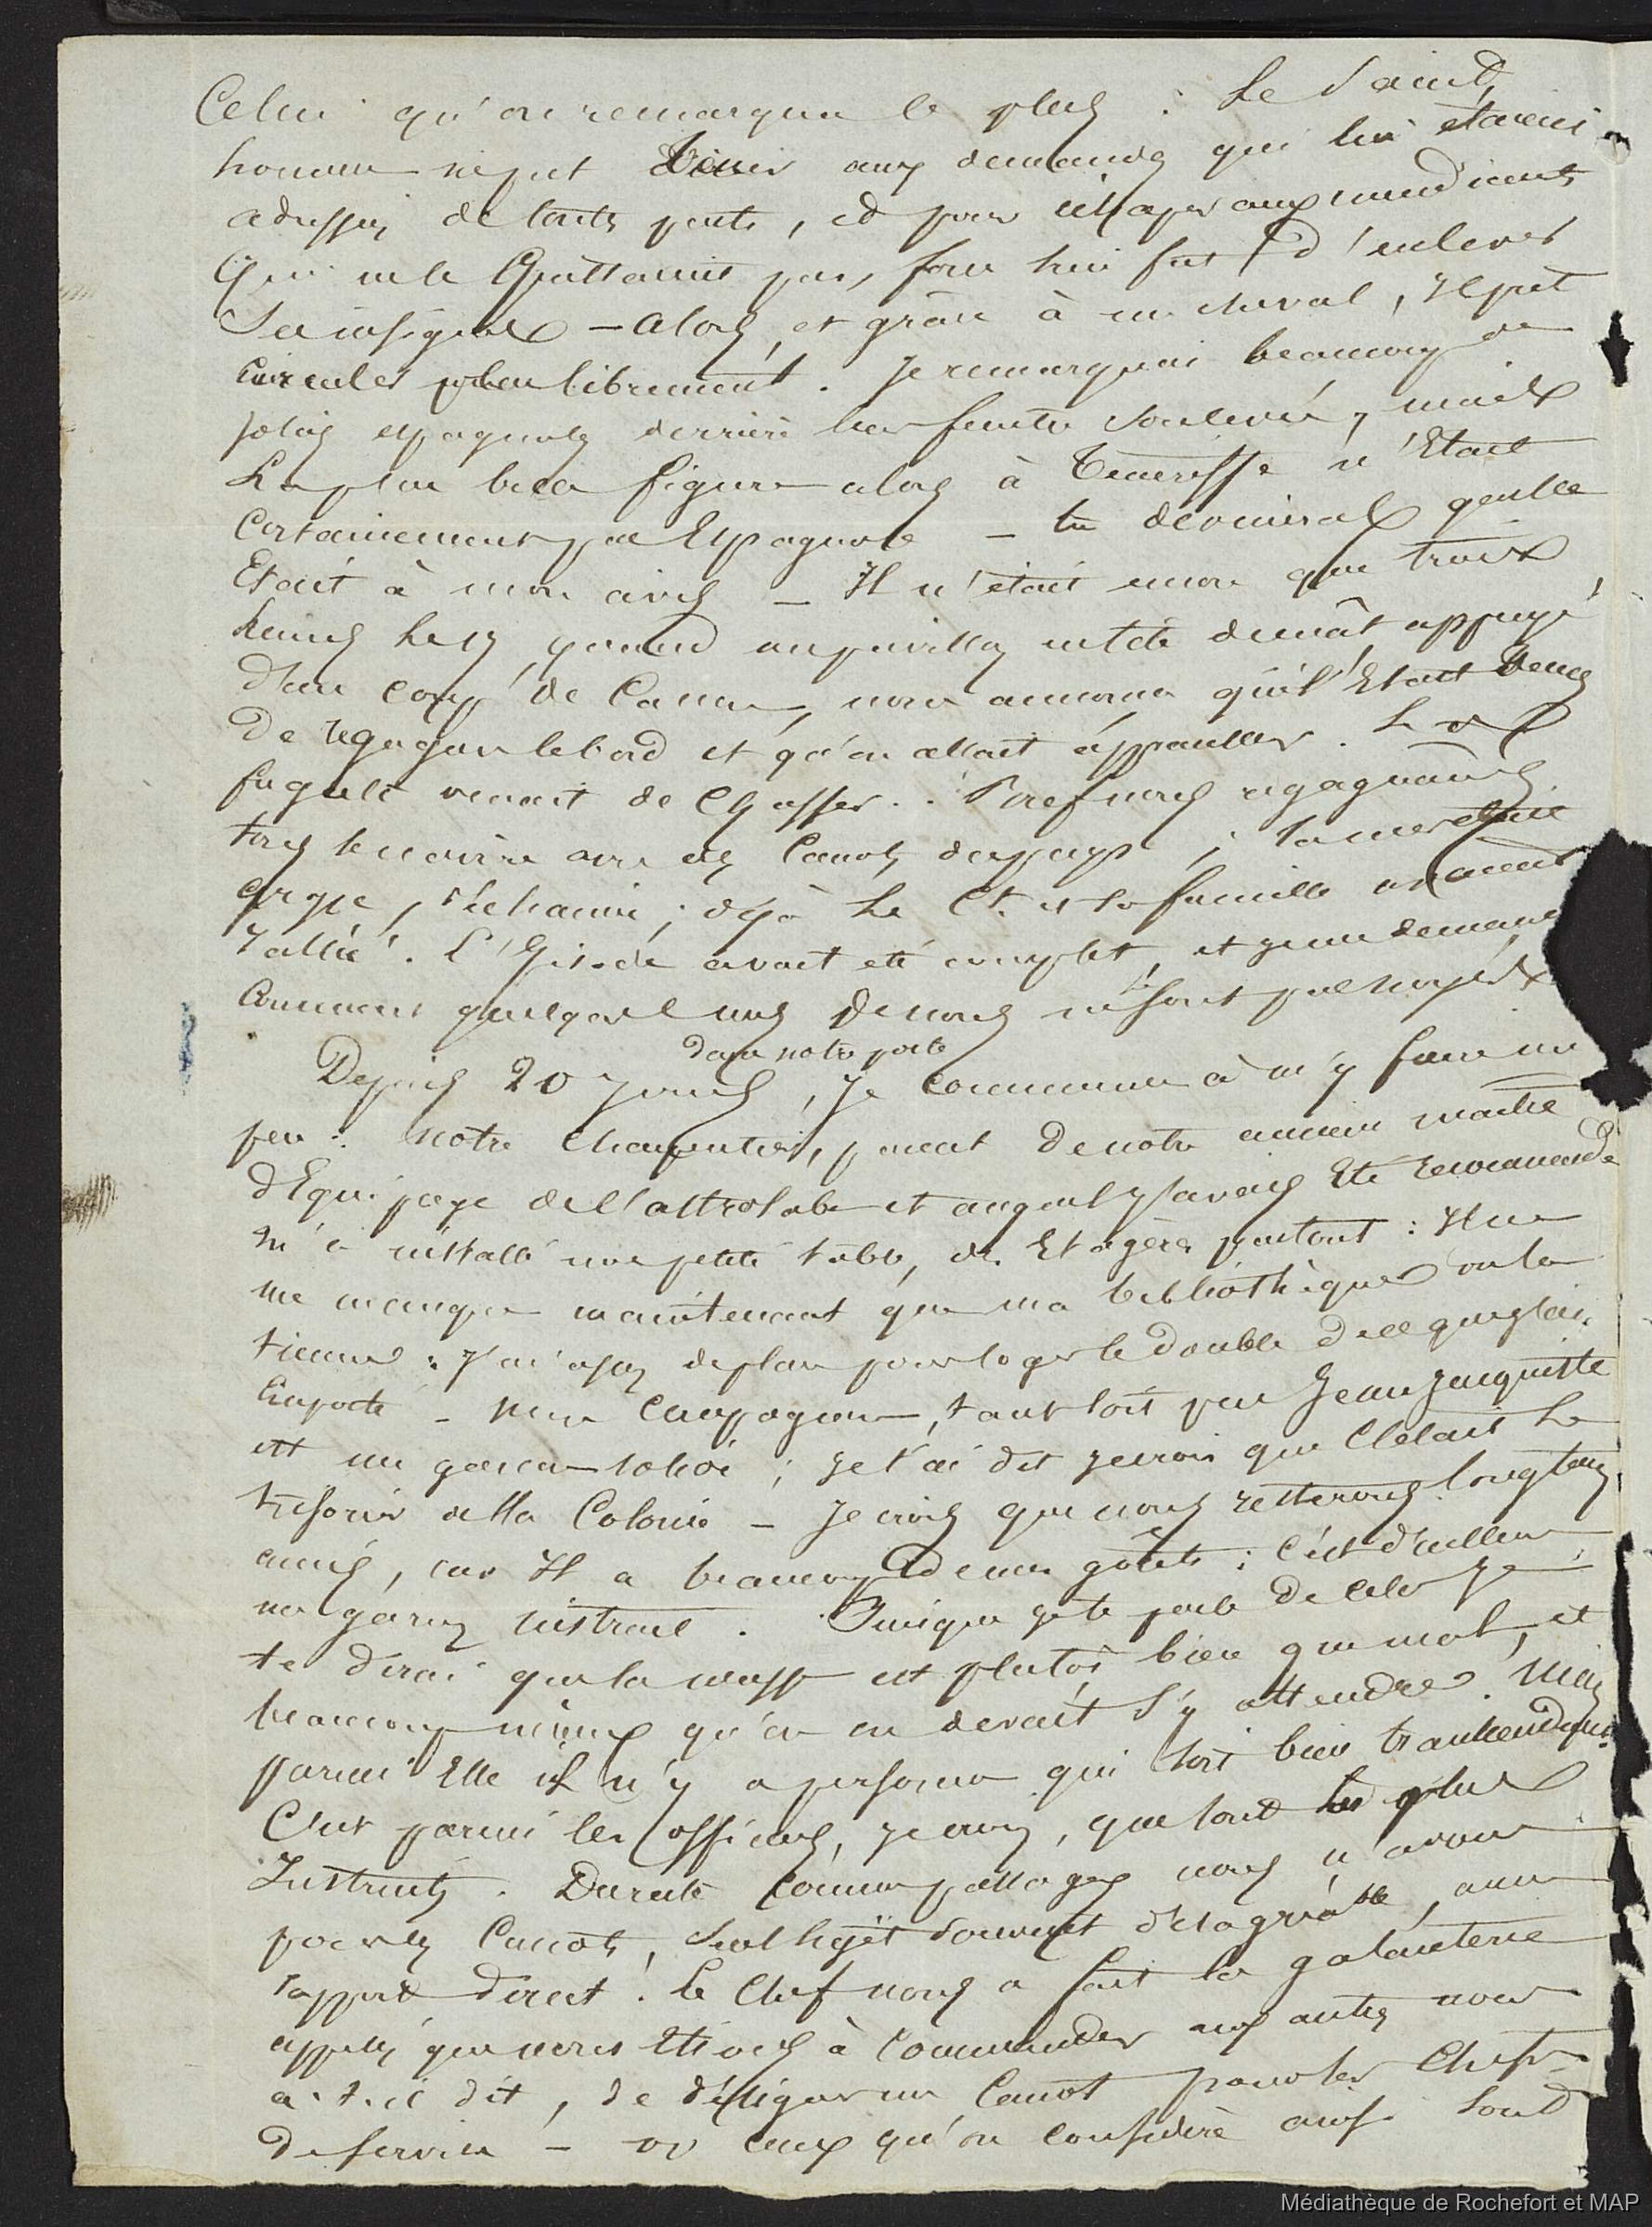 Celui qu'on remarqua le plus : le Saint
homme ne put tenir aux demandes qui lui étaient
adressées de toutes parts, et pour échaper aux mendiants
Qui ne le Quittaient pas, force lui fut d'enlever
Ses insignes — alors, et grâce à un cheval, Il put
Circuler plus librement. Je remarquai beaucoup de
jolies espagnoles derrière leur fenêtre soulevée, mais
La plus belle figure alors à Ténériffe n'Etait
Certainement pas Espagnole — tu devineras quelle
Etait à mon avis — Il n'était encore que trois
heures, quand un pavillon en tête de mât appuyé
d'un coup de Canon, nous annonça qu'il Etait temps
De regagner le bord et qu'on allait appareiller. Le
venait de chasser. Bref nous regagnâmes
tous le navire avec des Canots du pays ; la mer était
grosse, déchainée ; déjà le Ct. et sa famille avaient
rallié. L'Episode avait été complet, et je me demande
Comment quelques uns de nous ne sont pas noyés
dans notre poste
Depuis 20 jours, Je commence à m'y faire un
peu : notre charpentier, parent de notre ancien maître
d'Equipage de l'astrolabe et auquel j'avais Eté recommandé
m'a installé une petite table, des Etagères partout : Il ne
me manque maintenant que ma bibliothèque ou la
tienne : J'ai assez de place pour loger le double de ce que j'ai
emporté — Mon Compagnon, tant soit peu Jean jacquiste
est un garçon solide ; je t'ai dit je crois que C'était le
trésorier de la Colonie — Je crois que nous resterons longtemps
amis, car Il a beaucoup de mes goûts ; c'est d'ailleurs
un garçon instruit. Puisque je te parle de cela je
te dirai que la masse est plutôt bien que mal, et
beaucoup mieux qu'on en devait s'y attendre. Mais
parmi Elle il n'y a personne qui soit bien transcendant
C'est parmi les officiers, je crois, que sont les plus
Instruits. Durant Comme passagers nous n'avons
pas les Canots, seul sujet souvent désagréable, aucun
rapport direct. Le Chef nous a fait la galanterie
appelés que nous Etions à Commander aux autres nous
a-t-il dit, de désigner un Canot pour les Chefs
de service — or ceux qu'on considère ainsi sont